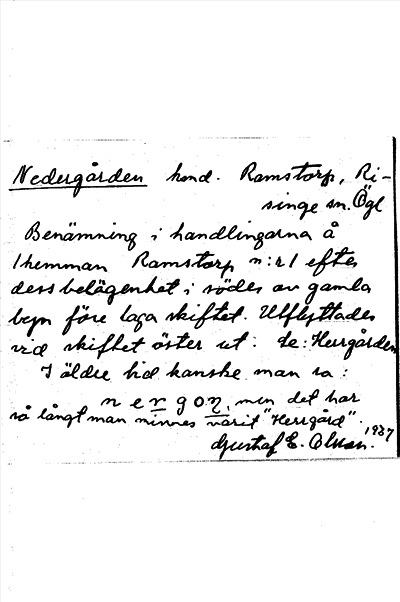 Nedergården hmd. Ramstorp, Ri-
singe sn. Ögl
Benämning i handlingarna å
1 hemman Ramstorp n:r 1 efter
dess belägenhet i söder av gamla
byn före laga skiftet. Utflyttades
vid skiftet öster ut. Se: Herrgården
I äldre tid kanske man sa:
nergoṇ, men det har
så långt man minnes varit "Herrgård".
Gustaf E. Olsson. 1937